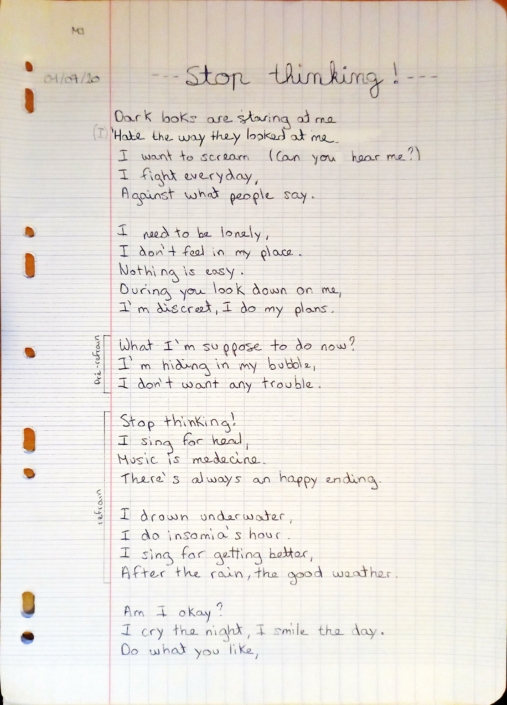 M3
01/09/20
--- Stop thinking! ---
Dark looks are staring at me
(I) Hate the way they looked at me.
I want to scream (Can you hear me?)
I fight everyday,
Against what people say.
I need to be lonely,
I don't feel in my place.
Nothing is easy.
During you look down on me,
I'm discreet, I do my plans.
Pré-refrain
What I'm suppose to do now?
I'm hiding in my bubble,
I don't want any trouble.
refrain
Stop thinking!
I sing for heal,
Music is medecine.
There's always an happy ending.
I drown underwater,
I do insomia's hour.
I sing for getting better,
After the rain, the good weather.
Am I okay?
I cry the night, I smile the day.
Do what you like,